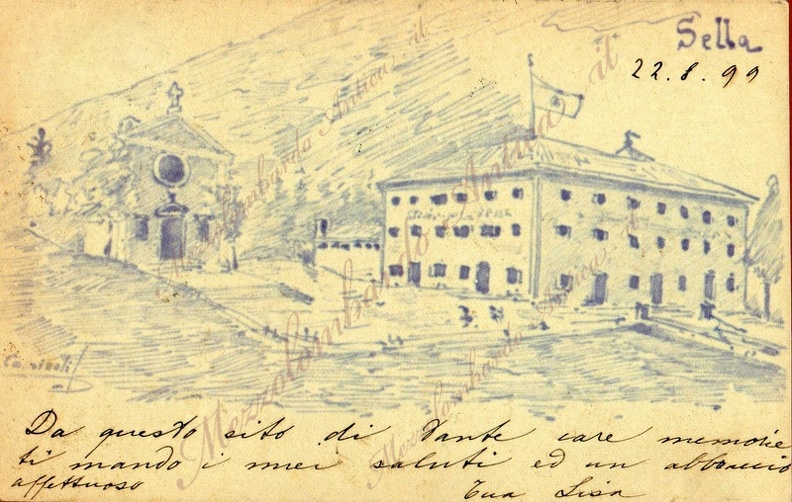 Sella
22.8.99
Mezzolombardo Antica.it
Mezzolombardo Antica.it
Mezzolombardo Antica.it
Mezzolombardo Antica.it
Da questo sito di tante care memorie
ti mando i miei saluti ed un abbraccio
affettuoso Tua Lisa